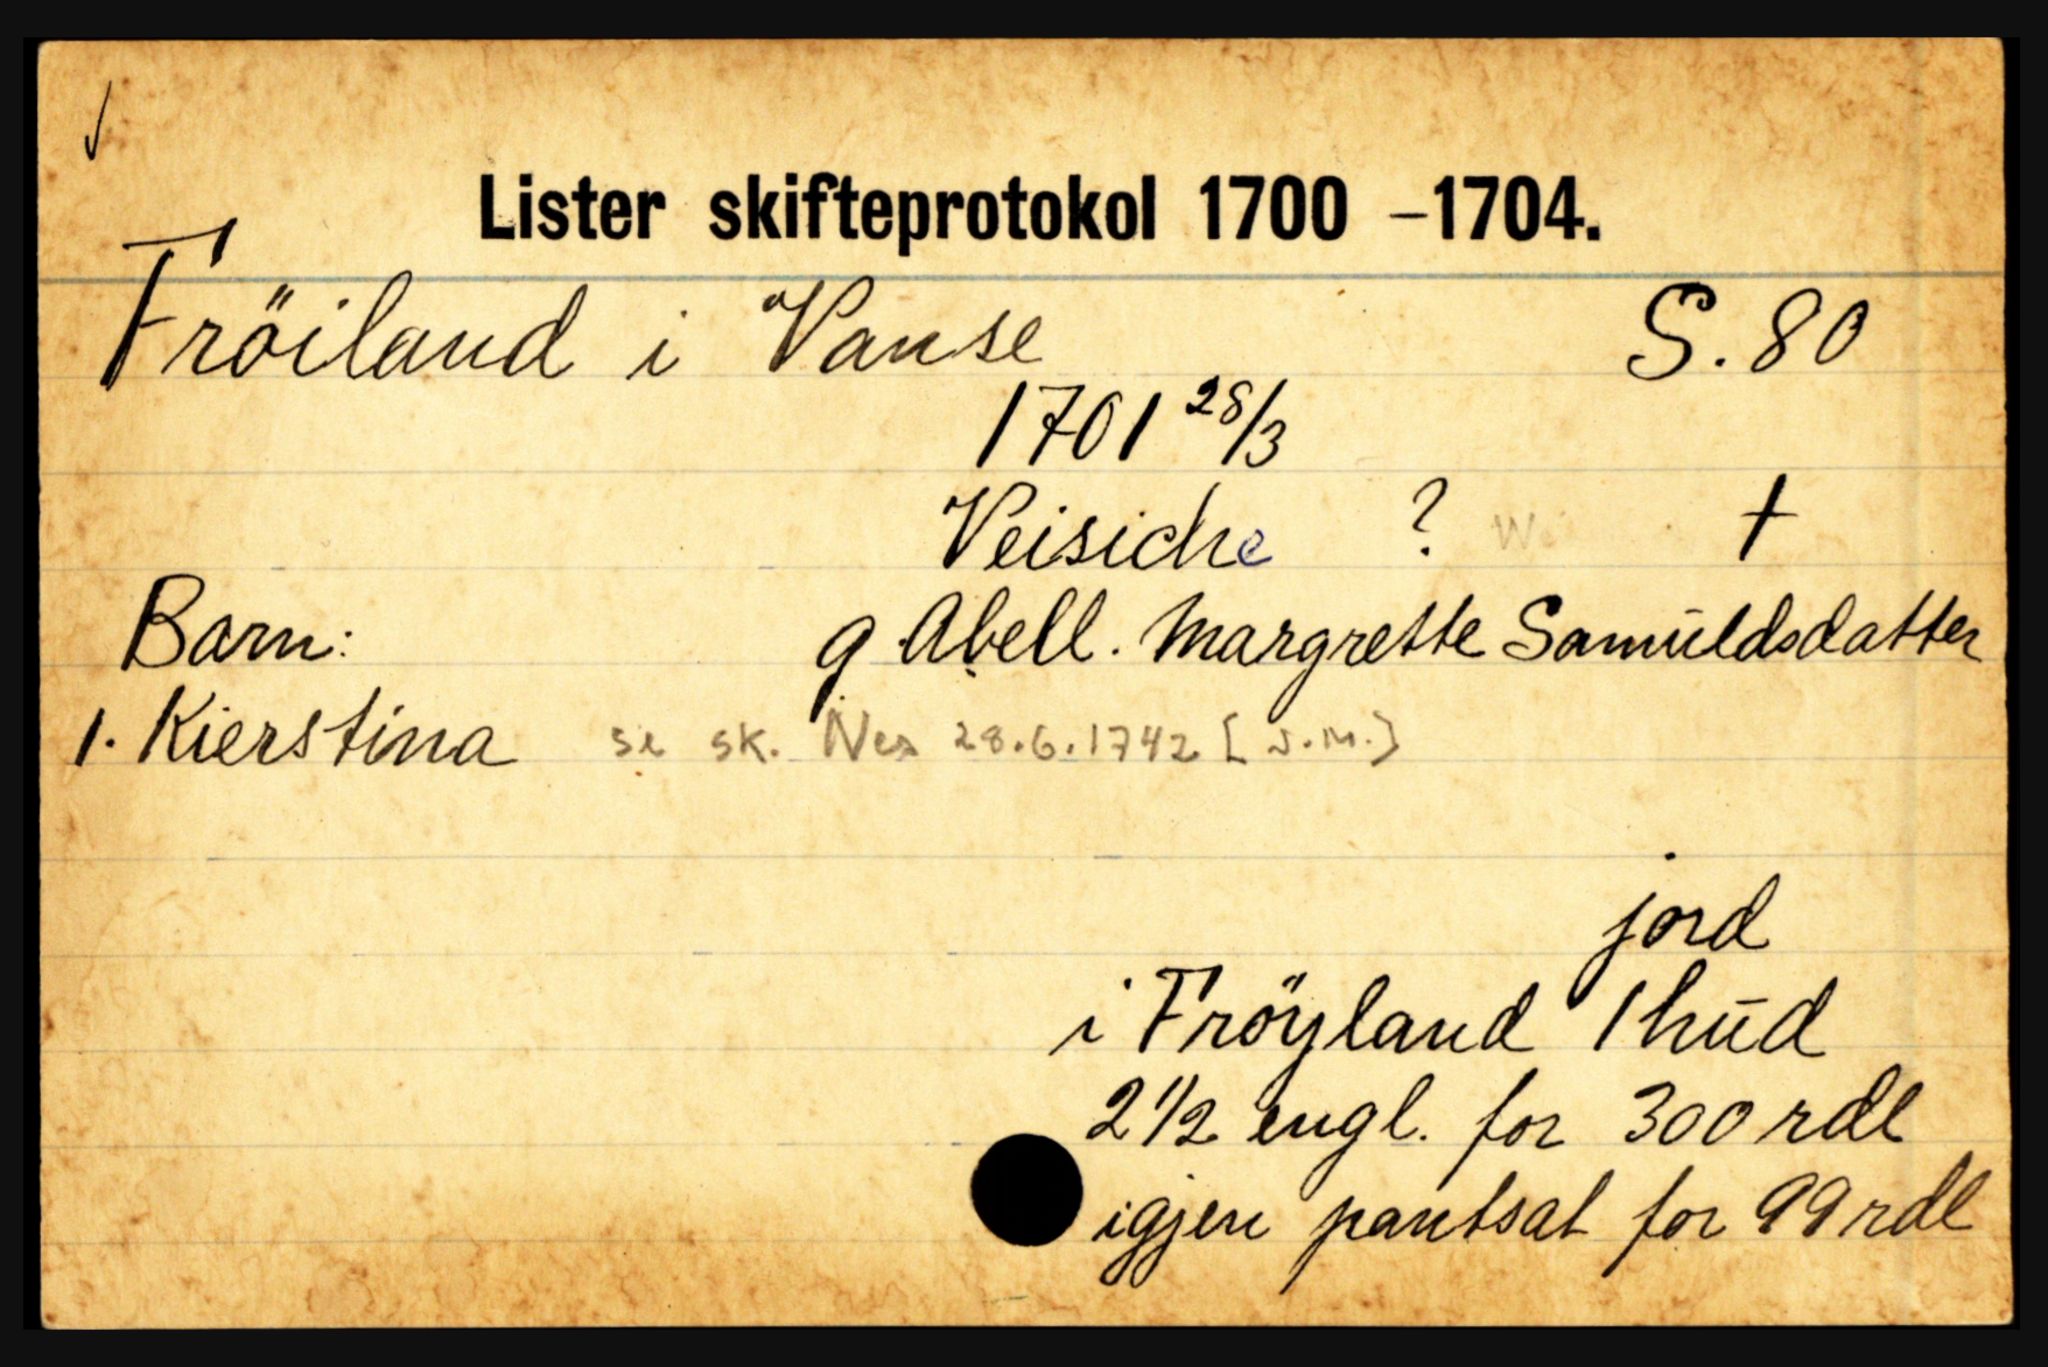 Lister skifteprotokol 1700 – 1704.
Fröiland i Vanse S. 80
1701 28/3
Veisiche ? †
Barn: g Abell. Margrette Samŭldsdatter
1. Kierstina se sk. Nes 28.6.1742 [J.M.]
jord
i Fröyland 1 hŭd
2 1/2 engl. for 300 rdl
igjen pantsat for 99 rdl